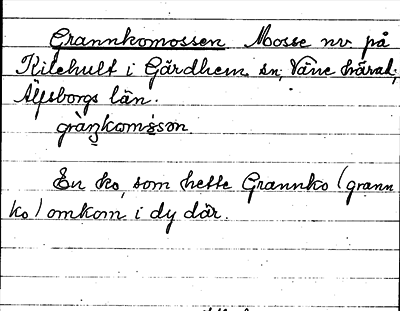 Grannkomossen Mosse nv på
Kilehult i Gärdhem sn, Väne härad,
Älfsborgs län.
En ko, som hette Grannko (grann
ko) omkom i dy där.